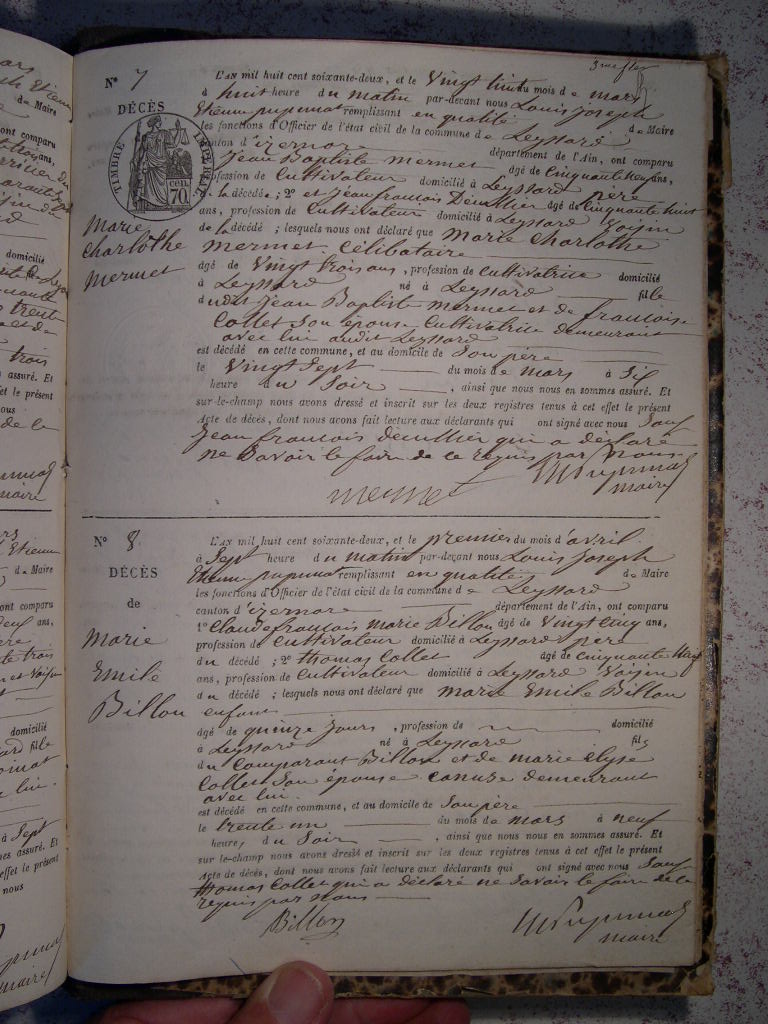 N° 7
L'AN mil huit cent soixante-deux, et le vingt huit du mois de mars
DÉCÈS
à huit heure du matin par-devant nous Louis Joseph
Etienne pupunat remplissant en qualité de Maire
les fonctions d'Officier de l'état civil de la commune de Leyssard
canton d'izernore département de l'Ain, ont comparu
TIMBRE IMPÉRIAL
70 cen.
Jean Baptiste mermet âgé de Cinquante neuf ans,
profession de Cultivateur domicilié à Leyssard père
de la décédée ; 2° et Jean francois âgé de Cinquante huit
ans, profession de Cultivateur domicilié à Leyssard Voisin
de la décédé ; lesquels nous ont déclaré que marie Charlothe
marie
Charlôthe
mermet
mermet Célibataire
âgé de Vingt trois ans, profession de Cultivatrice domicilié
à Leyssard né à Leyssard fille
dudit Jean Baptiste mermet et de francoise
Collet Son épouse Cultivatrice demeurant
avec lui audit Leyssard
est décédé en cette commune, et au domicile de Son père
le Vingt Sept du mois de mars à Six
heure du Soir, ainsi que nous nous en sommes assuré. Et
sur-le-champ nous avons dressé et inscrit sur les deux registres tenus à cet effet le présent
Acte de décès, dont nous avons fait lecture aux déclarants qui ont signé avec nous Sauf
Jean francois qui a déclaré
ne Savoir le faire de ce requis par nous
mermet
maire
N° 8
L'AN mil huit cent soixante-deux, et le premier du mois d'avril
DÉCÈS
à Sept heure du matin par-devant nous Louis Joseph
Etienne pupunat remplissant en qualité de Maire
les fonctions d'Officier de l'état civil de la commune de Leyssard
de
canton d'izernore département de l'Ain, ont comparu
1° Claude francois marie Billon âgé de Vingt Cinq ans,
marie
Emile
Billon
profession de Cultivateur domicilié à Leyssard père
du décédé ; 2° thomas Collet âgé de Cinquante neuf
ans, profession de Cultivateur domicilié à Leyssard Voisin
du décédé ; lesquels nous ont déclaré que marie Emile Billon
enfant
âgé de quinze jours, profession de domicilié
à Leyssard né à Leyssard fils
du Comparant Billon et de marie élyse
Collet Son épouse demeurant
avec lui
est décédé en cette commune, et au domicile de Son père
le trente un du mois de mars à neuf
heures du Soir, ainsi que nous nous en sommes assuré. Et
sur-le-champ nous avons dressé et inscrit sur les deux registres tenus à cet effet le présent
Acte de décès, dont nous avons fait lecture aux déclarants qui ont signé avec nous Sauf
thomas Collet qui a déclaré ne Savoir le faire de ce
requis par nous
Billon
maire